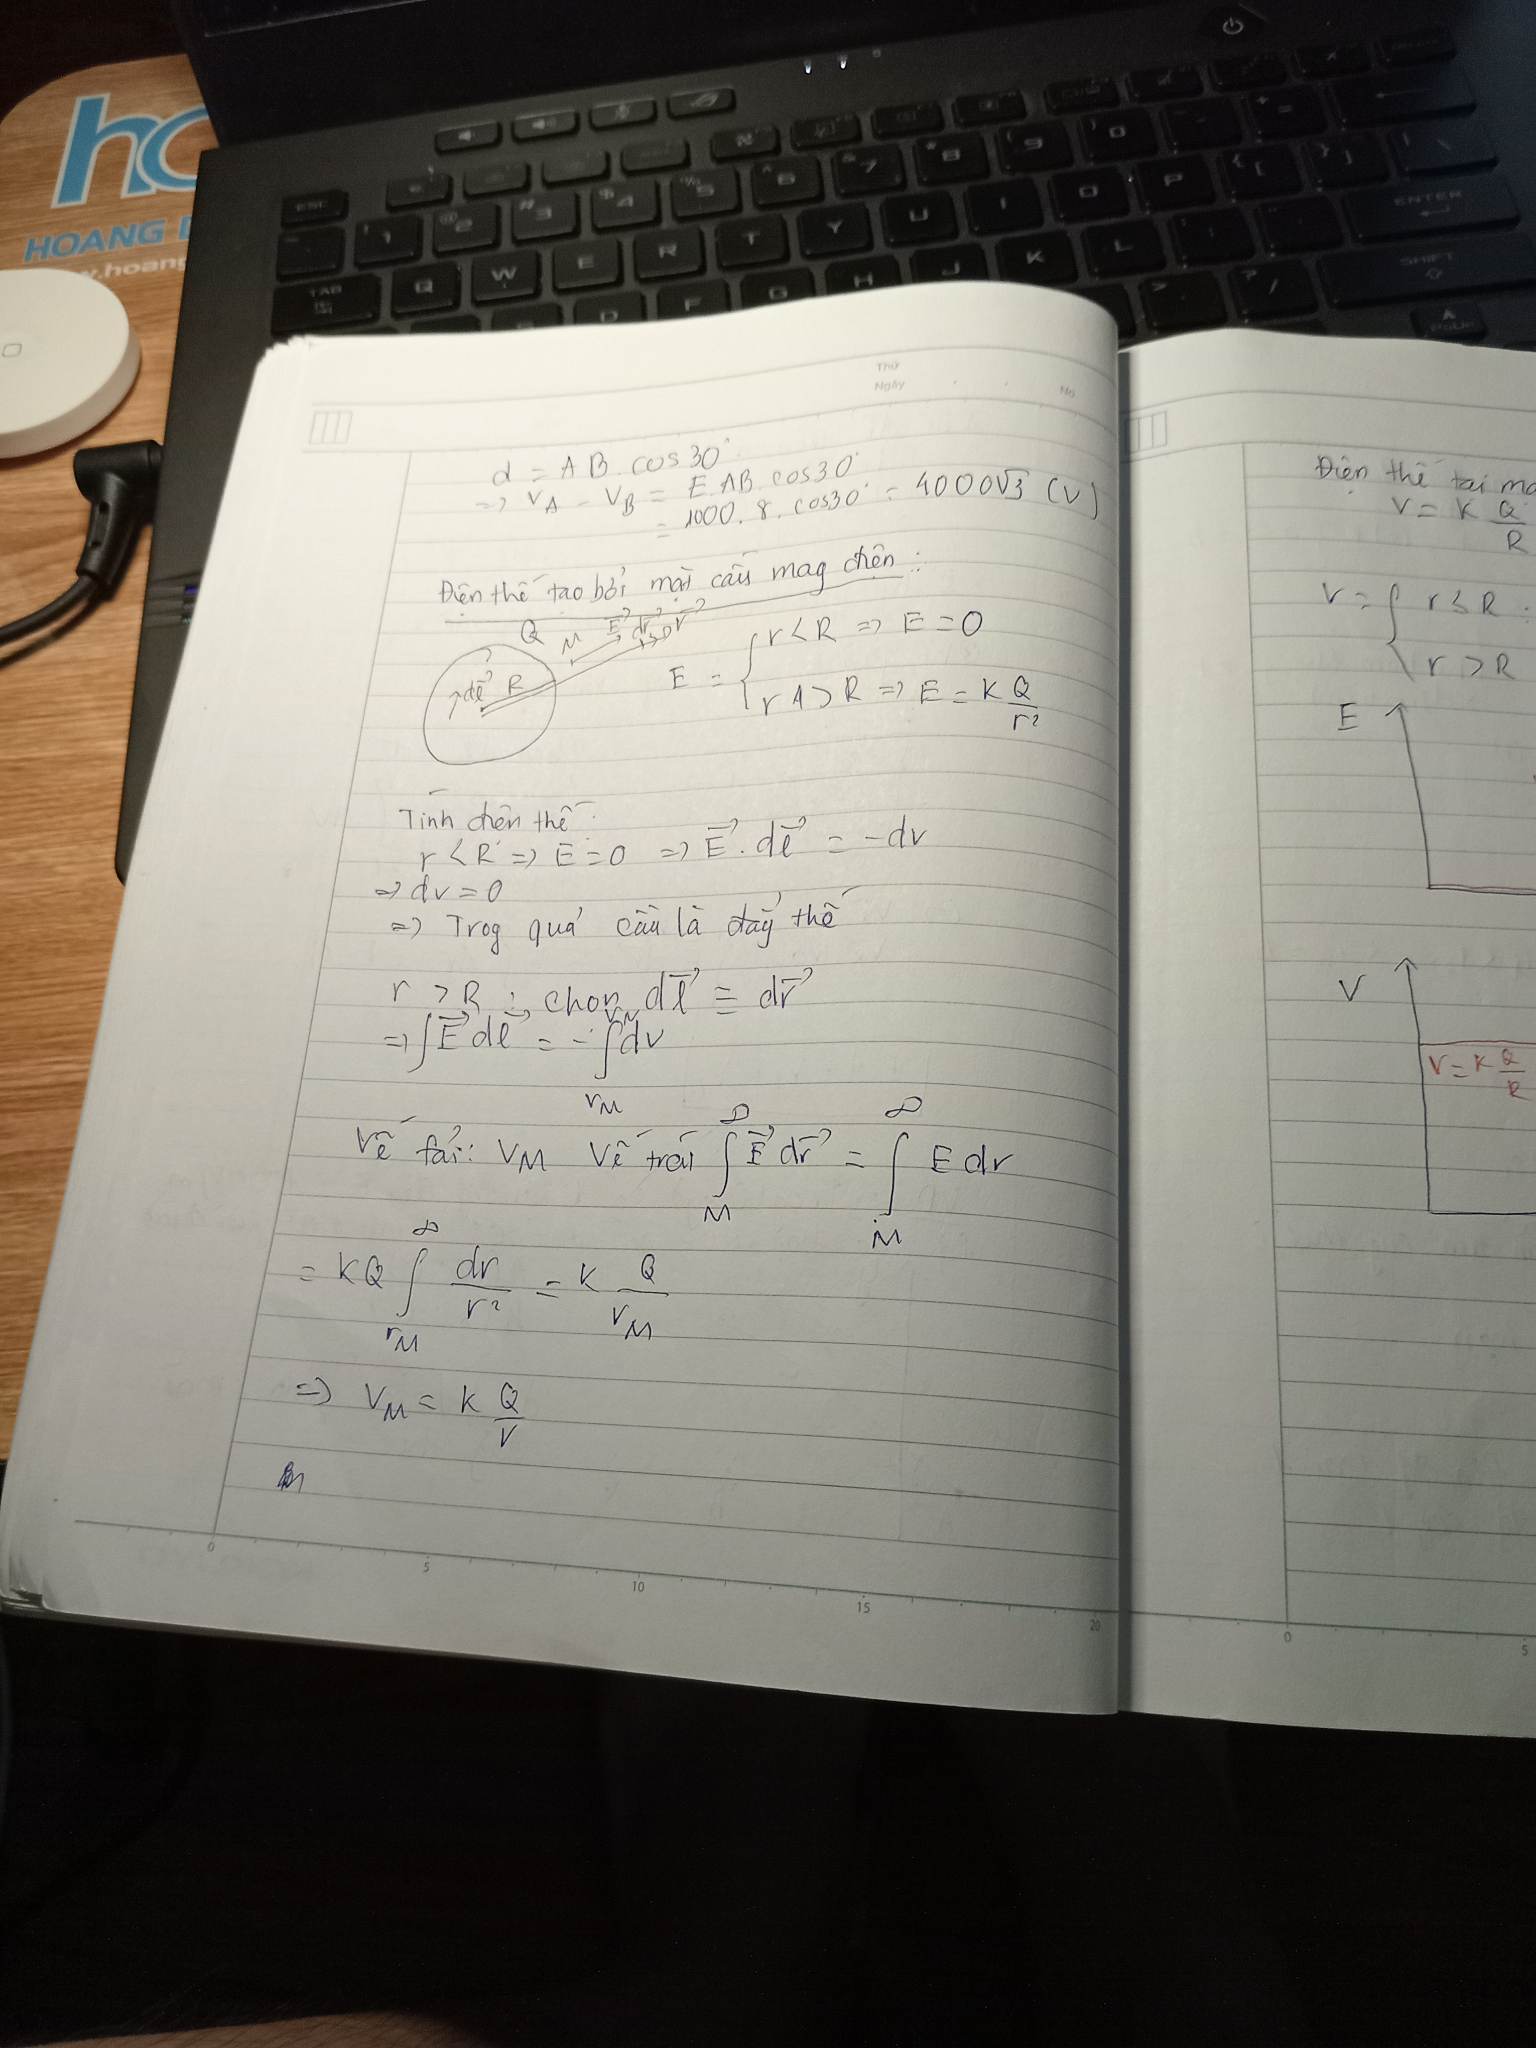 HOANG
Thứ
Ngày
No
d = AB. cos30°
=> V_A - V_B = E.AB cos30°
= 1000. 8. cos30° = 4000√3 (V)
Điện thế tạo bởi mặt cầu mag điện:
Q M E→ dr→ r→
dl→ R
E = { r < R => E = 0
r > R => E = K Q/r²
Tính điện thế:
r < R => E = 0 => E→. dl→ = -dv
=> dv = 0
=> Trog quả cầu là đẳg thế
r > R : chọn dl→ ≡ dr→
=> ∫ E→ dl→ = - ∫ dv
Vế fải: V_M Vế trái ∫_M^∞ E→ dr→ = ∫_M^∞ E dr
= KQ ∫_{r_M}^∞ dr/r² = K Q/r_M
=> V_M = K Q/r
0 5 10 15 20
Điện thế tại
V = K Q/R
V = { r ≤ R :
r > R
E
V
V = K Q/R
0 5
ESC
TAB
Q W E R T Y U I O P
ENTER
D F G H J K L
SHIFT